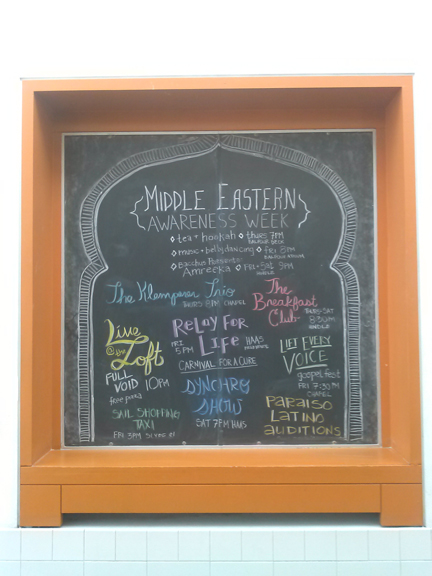 MIDDLE EASTERN
AWARENESS WEEK
tea + hookah thurs 7PM
music + belly dancing Fri 8PM
Bacchus Presents:
Amreeka Fri + Sat 9PM
The Klemperer Trio
THURS 8PM CHAPEL
The
Breakfast
Club
THURS-SAT
8:30
Live
@ the
Loft
FULL
VOID 10PM
free pizza
RELAY FOR
LIFE
FRI
5PM
HAAS
CARNIVAL FOR A CURE
LIFT EVERY
VOICE
gospel fest
FRI 7:30PM
CHAPEL
SYNCHRO
SHOW
SAT 7PM HAAS
SAIL SHOPPING
TAXI
FRI 3PM
PARAISO
LATINO
AUDITIONS